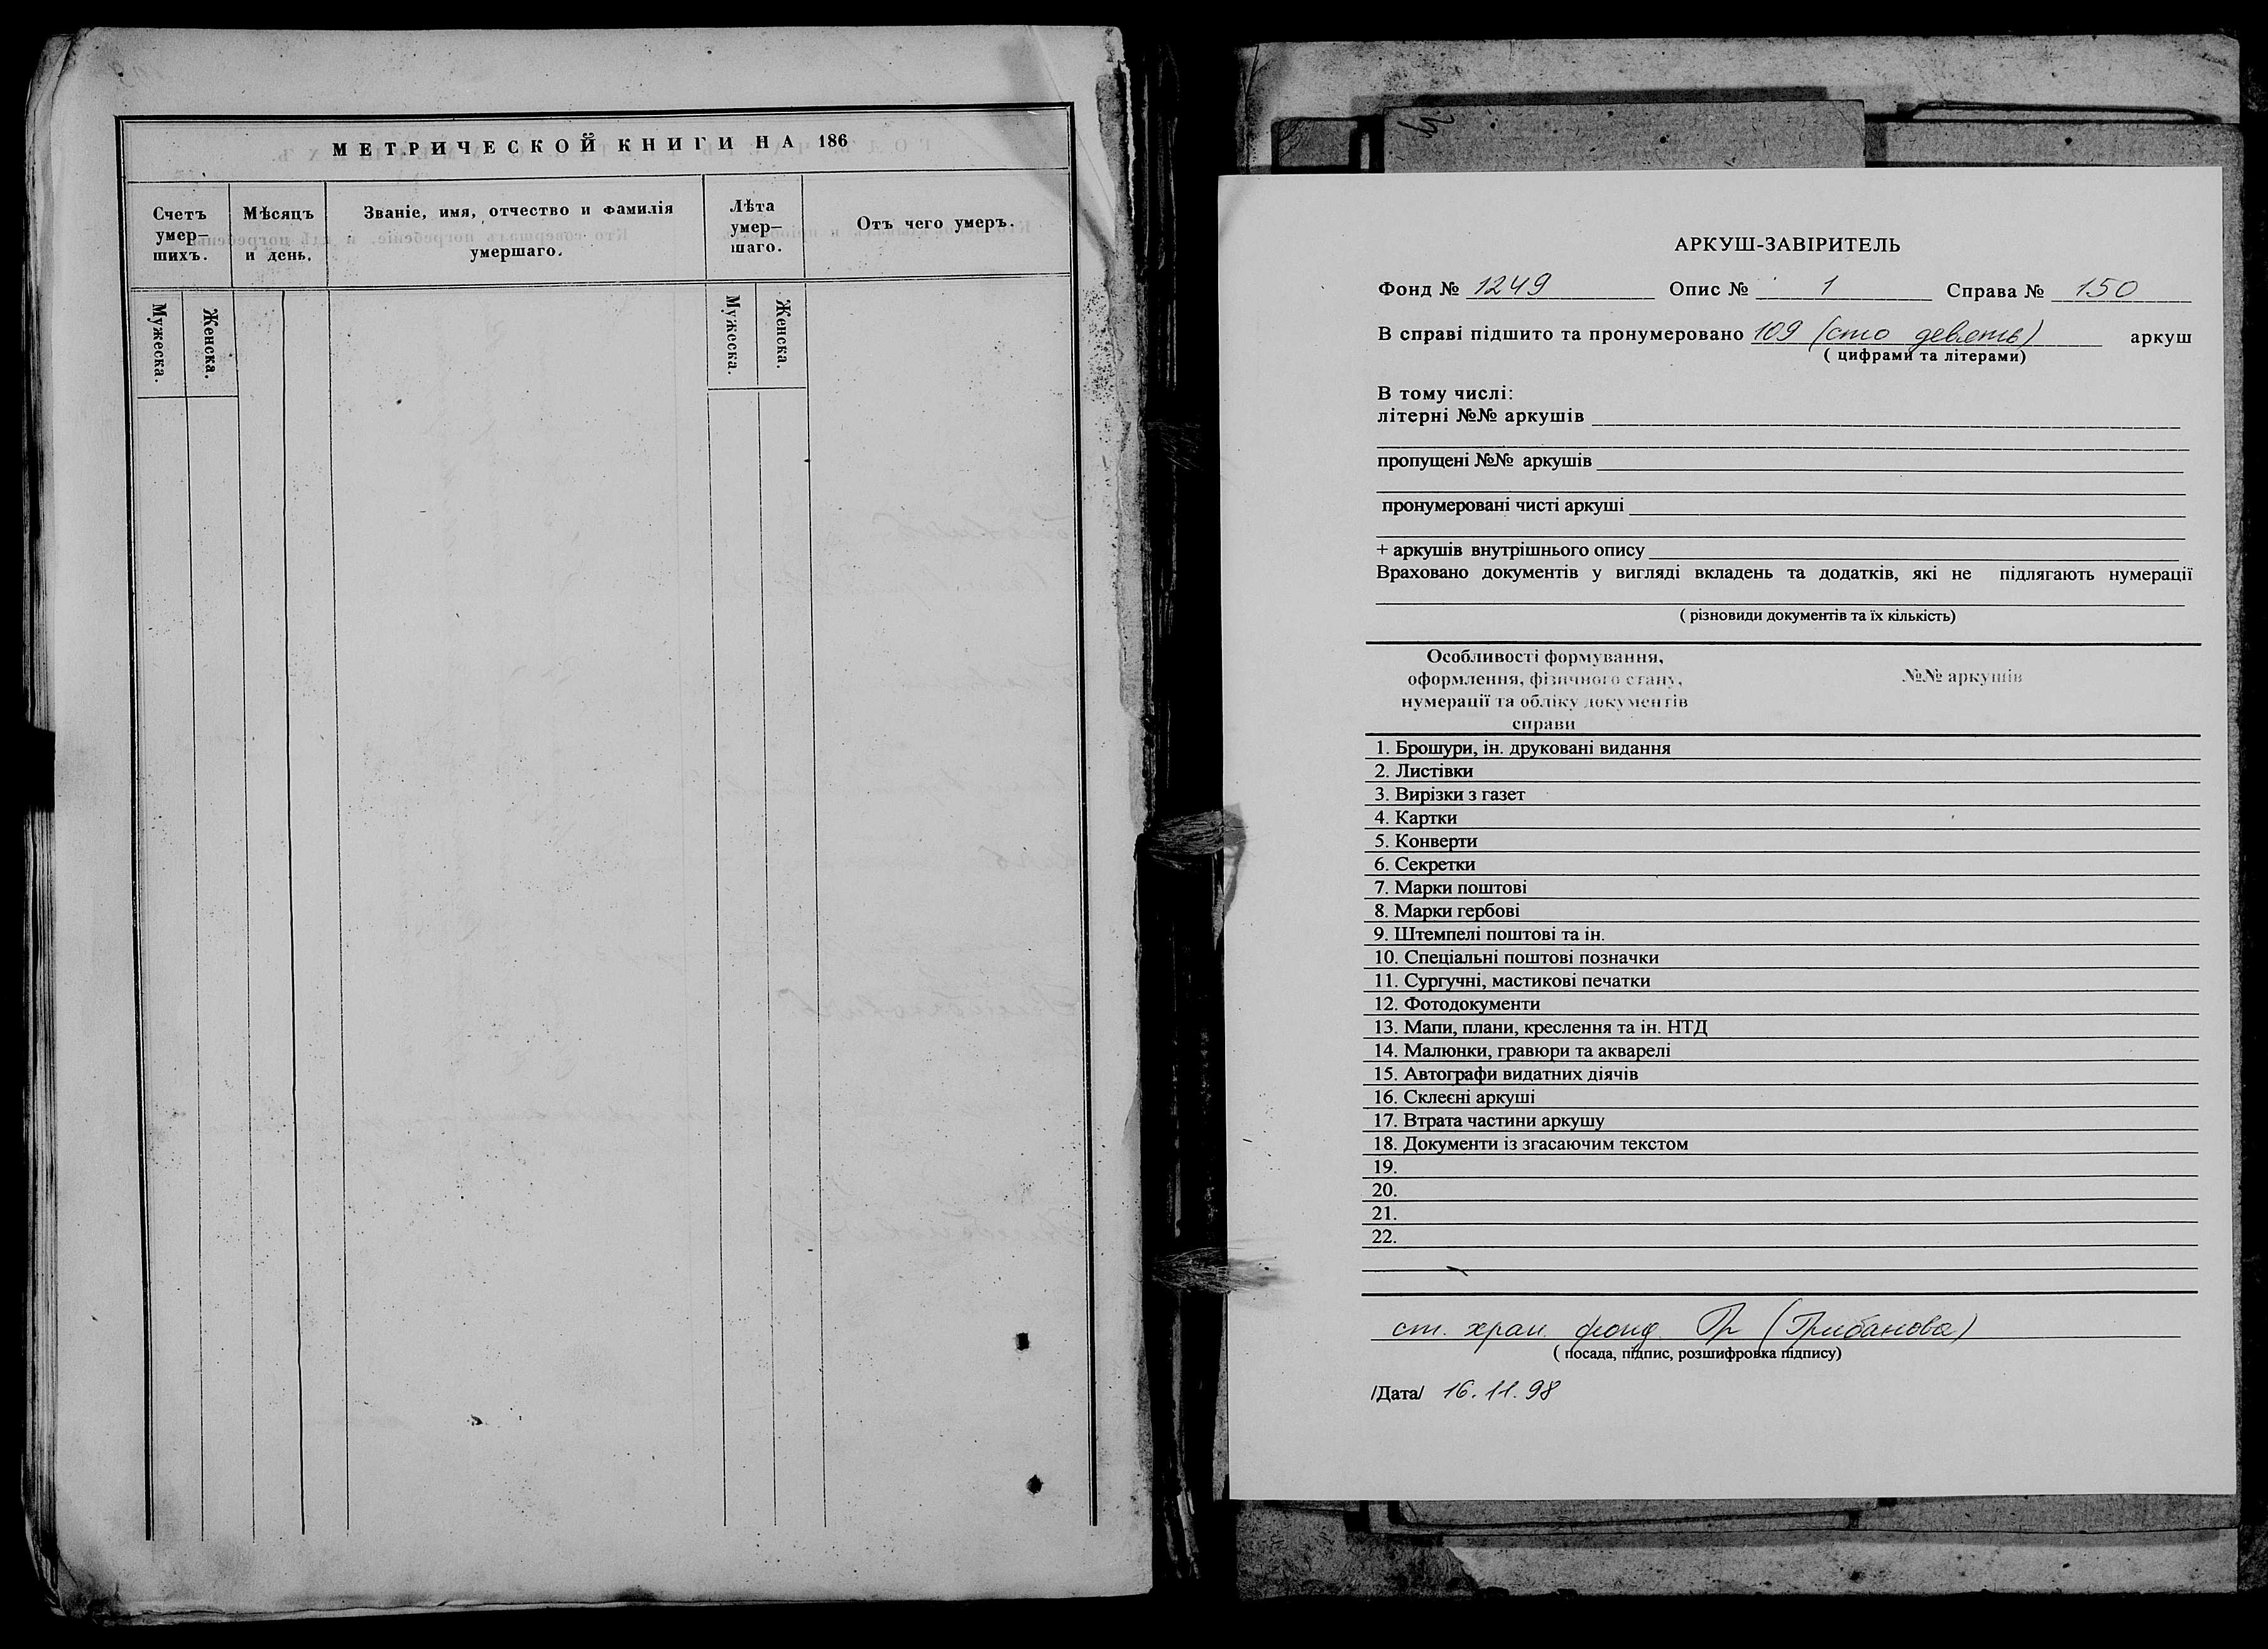 МЕТРИЧЕСКОЙ КНИГИ НА 186
Счетъ умер–шихъ.
Мѣсяцъ и день.
Званіе, имя, отчество и фамилія умершаго.
Лѣта умер–шаго.
Отъ чего умеръ.
Мужеска.
Женска.
Мужеска.
Женска.
АРКУШ-ЗАВІРИТЕЛЬ
Фонд № 1249 Опис № 1 Справа № 150
В справі підшито та пронумеровано 109 (сто девять) аркуш
( цифрами та літерами)
В тому числі:
літерні №№ аркушів
пропущені №№ аркушів
пронумеровані чисті аркуші
+ аркушів внутрішнього опису
Враховано документів у вигляді вкладень та додатків, які не підлягають нумерації
( різновиди документів та їх кількість)
Особливості формування,
оформлення, фізичного стану,
нумерації та обліку документів
справи
№№ аркушів
1. Брошури, ін. друковані видання
2. Листівки
3. Вирізки з газет
4. Картки
5. Конверти
6. Секретки
7. Марки поштові
8. Марки гербові
9. Штемпелі поштові та ін.
10. Спеціальні поштові позначки
11. Сургучні, мастикові печатки
12. Фотодокументи
13. Мапи, плани, креслення та ін. НТД
14. Малюнки, гравюри та акварелі
15. Автографи видатних діячів
16. Склеєні аркуші
17. Втрата частини аркушу
18. Документи із згасаючим текстом
19.
20.
21.
22.
ст. хран. фонд. Гр (Грибанова)
( посада, підпис, розшифровка підпису)
/Дата/ 16.11.98